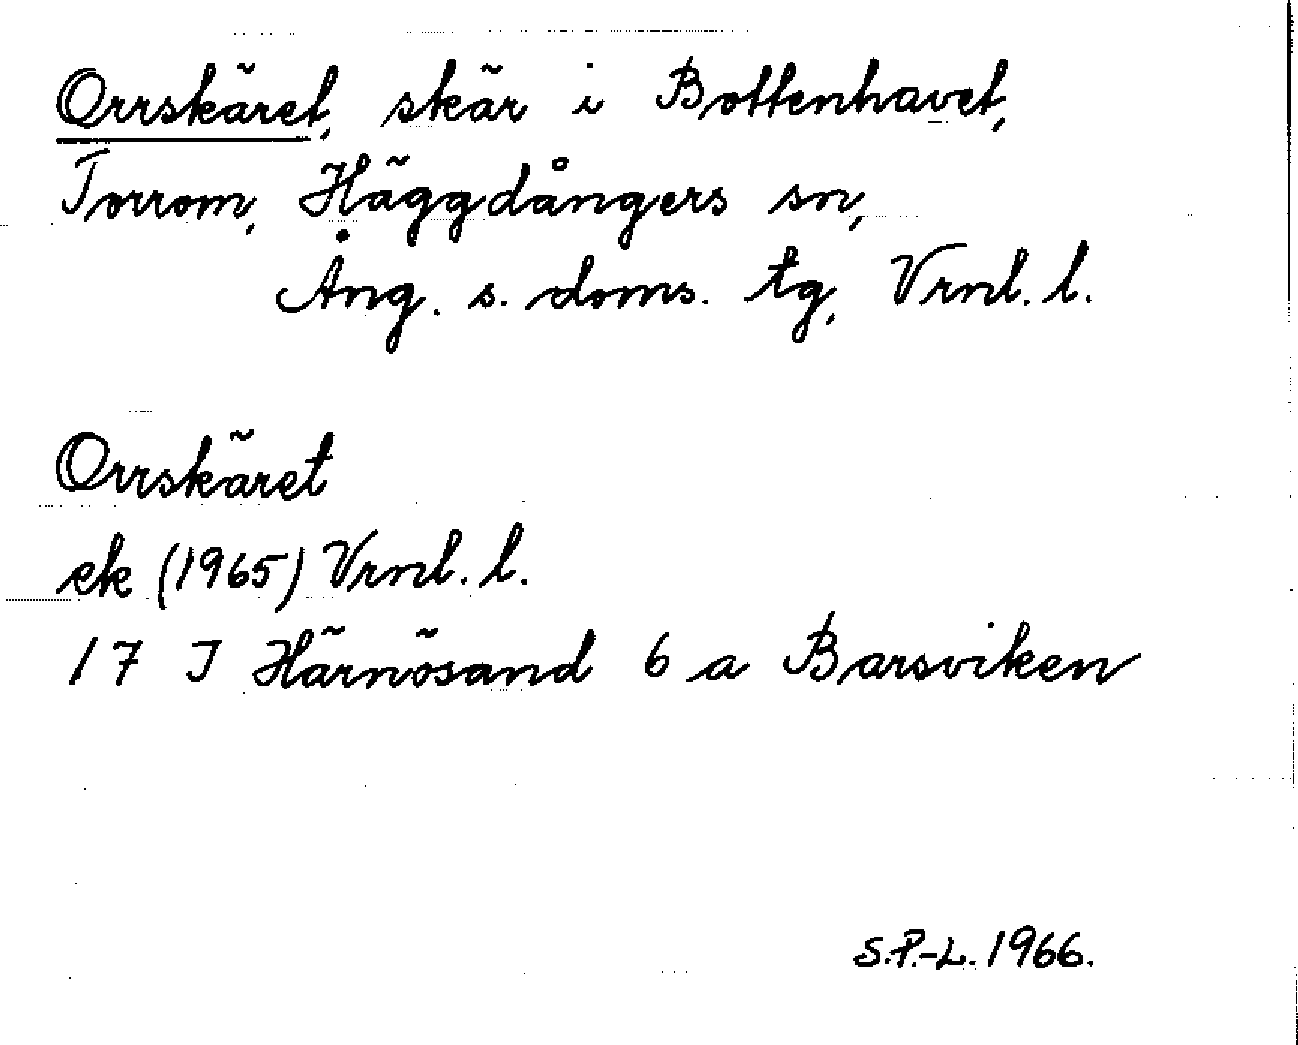 Orrskäret, skär i Bottenhavet,
Torrom, Häggdångers sn,
Ång. s. doms. tg, Vrnl. l.
Orrskäret
ek (1965) Vrnl. l.
17 I Härnösand 6 a Barsviken
S.P.-L. 1966.